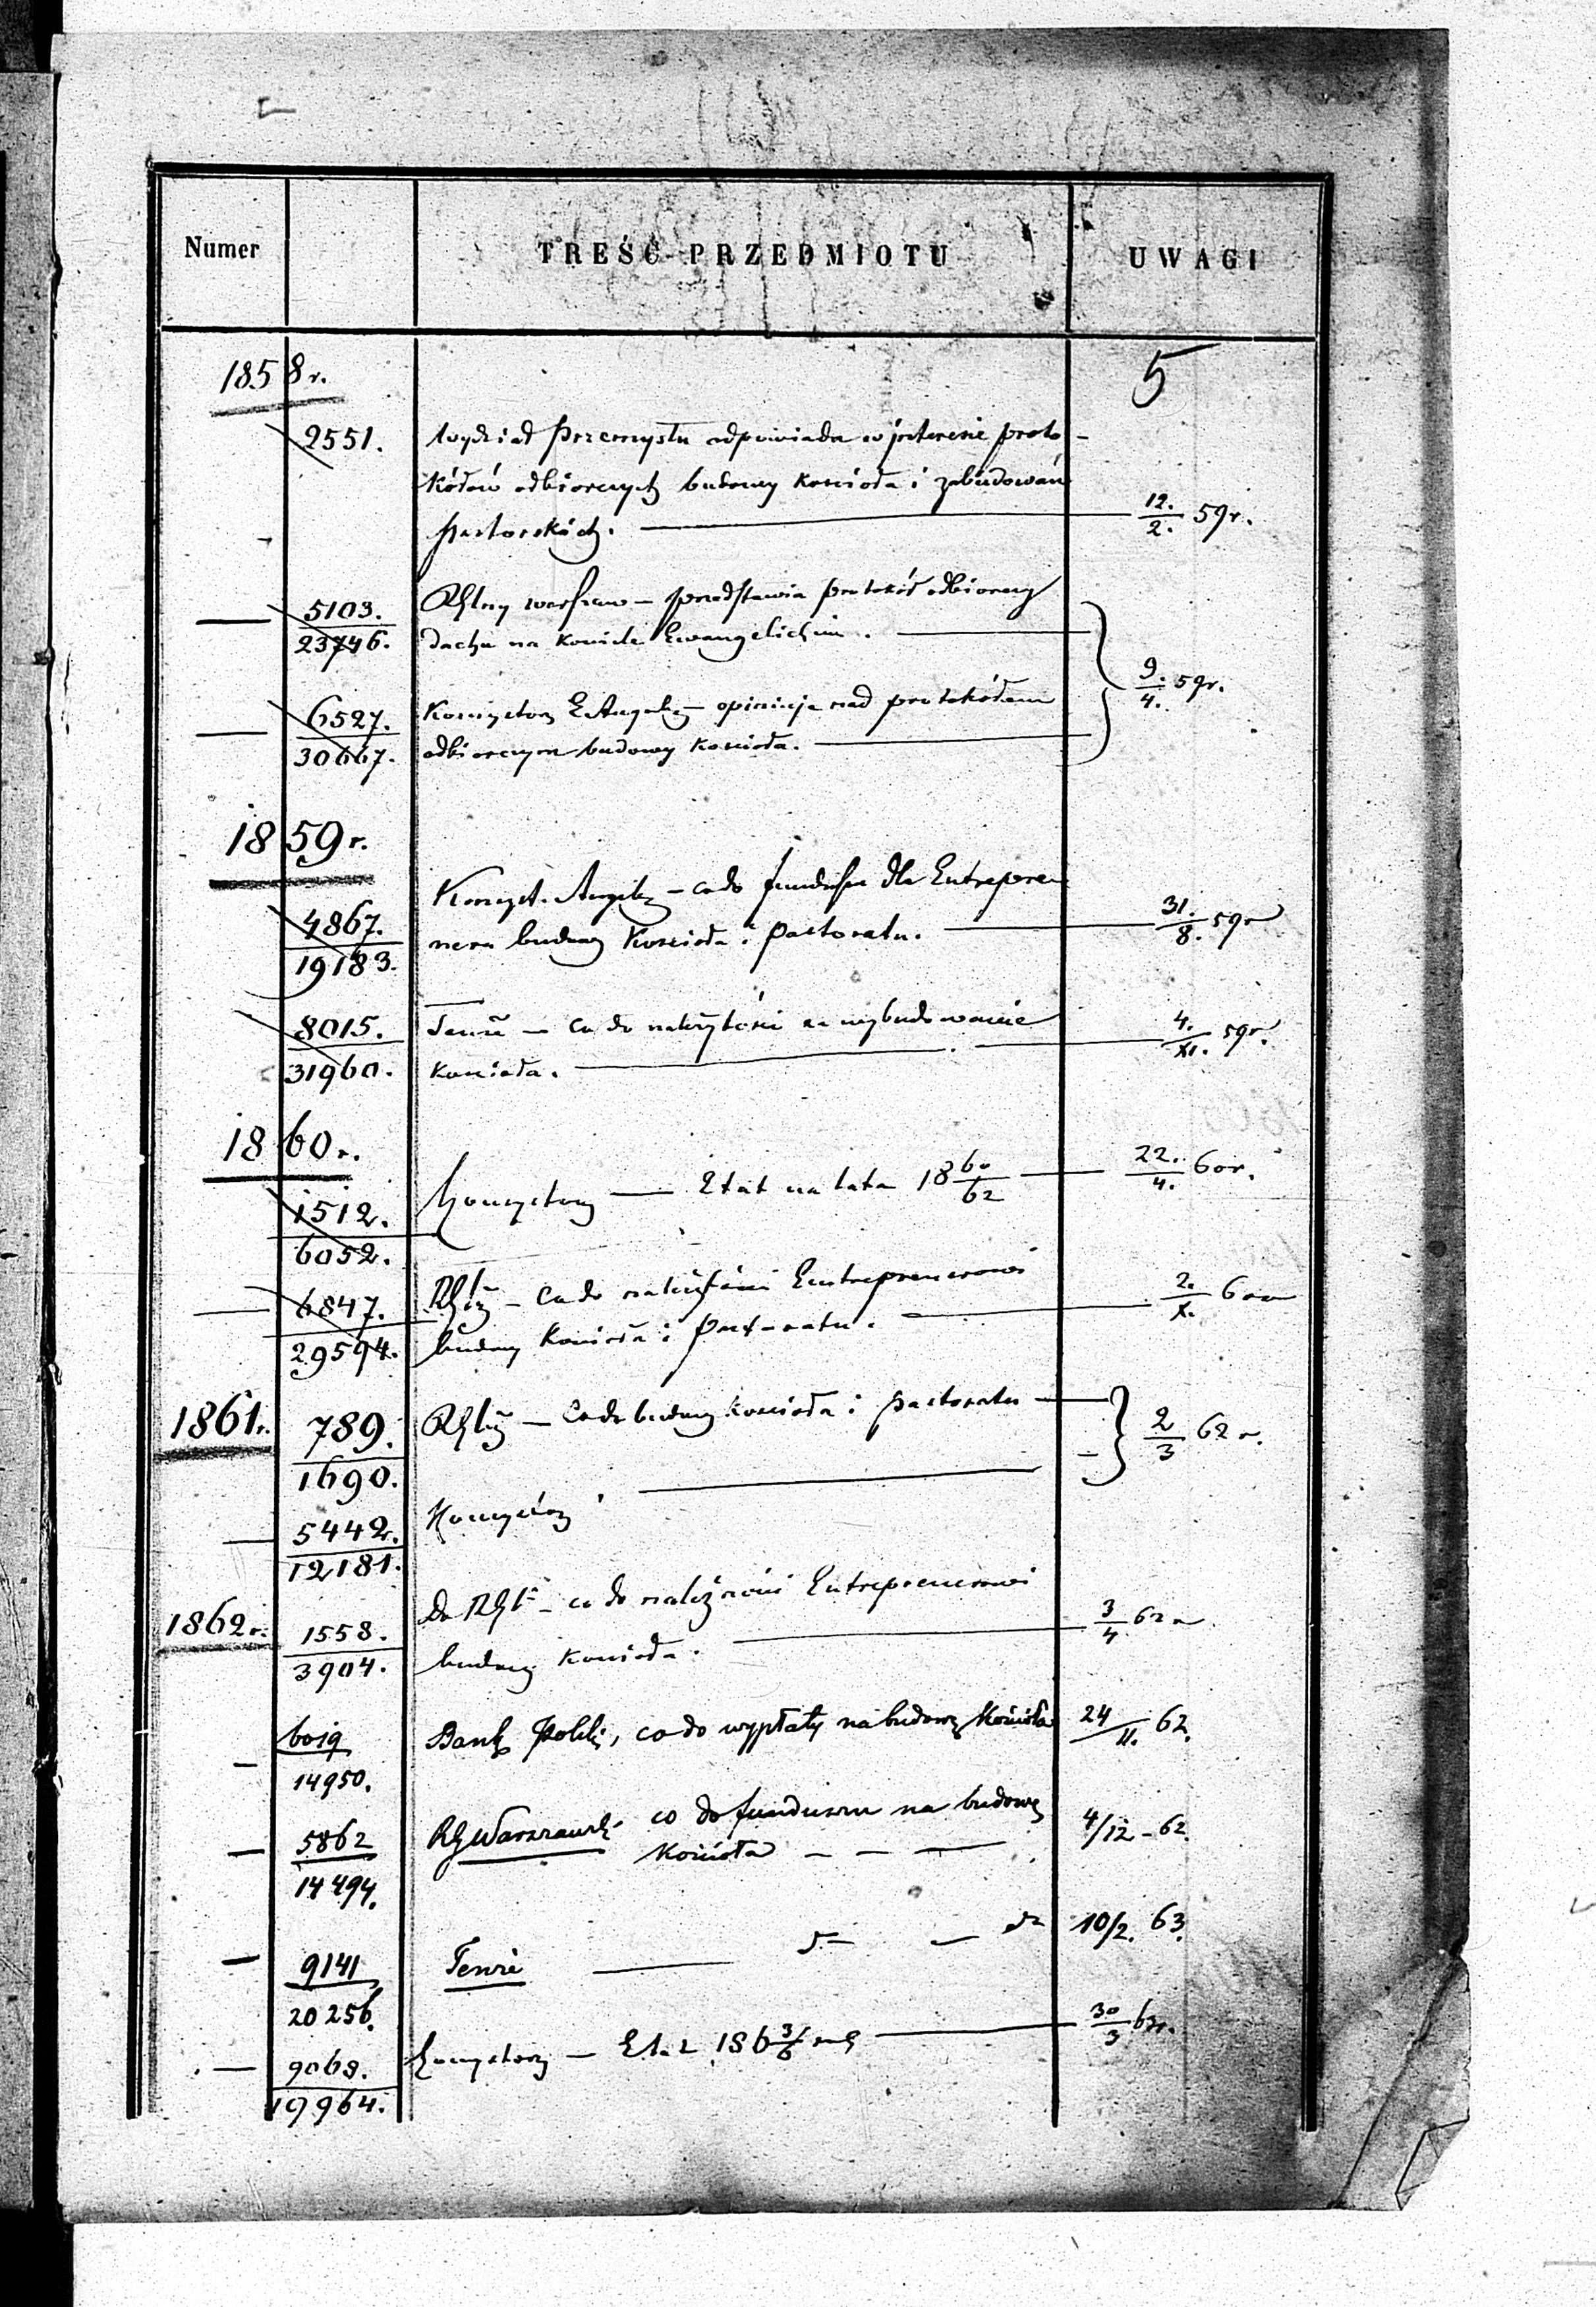 Numer TREŚĆ PRZEDMIOTU UWAGI
1858 r. 5
2551. Wydział Przemysłu odpowiada w interesie proto-
kółów odbiorczych budowy Kościoła i zabudowań
pastorskich. 12./2. 59 r.
5103. RGlny warszaw – przedstawia protokół odbiorczy
23746. dachu na Kościele Ewangelickim. 9./4. 59r.
6527. Konsystorz – opinija nad protokółem
30667. odbiorczym budowy Kościoła.
1859 r.
4867. Konsyst. – co do funduszu dla Entrepre-
19183. nera budowy Kościoła i Pastoratu. 31./8. 59 r
8015. Tenże – co do należytości za wybudowanie 4./XI. 59r.
31960. Kościoła.
1860 r.
1512. Konsystorz — Etat na lata 18 60/62 — 22./4. 60 r.
6052.
6847. – co do należytości Entreprenerowi 2./X. 60 r
29594. budowy Kościoła i Pastoratu.
1861 r. 789. – Co do budowy Kościoła i pastoratu — 2/3 62 r.
1690.
5442. Konsystorz
12181.
1862 r. 1558. Do – co do należności Entreprenerowi 3/4 62 r
3904. budowy Kościoła.
6019 Bank Polski, co do wypłaty na budowę Kościoła 24/11. 62.
14950.
5862 RGWarszawski co do funduszu na budowę 4/12 – 62.
14494. Kościoła — — —
9141 Tenże — — 10/2. 63.
20256.
9068. Konsystorz – Etat 186 3/6 — 30/3 63r.
19964.